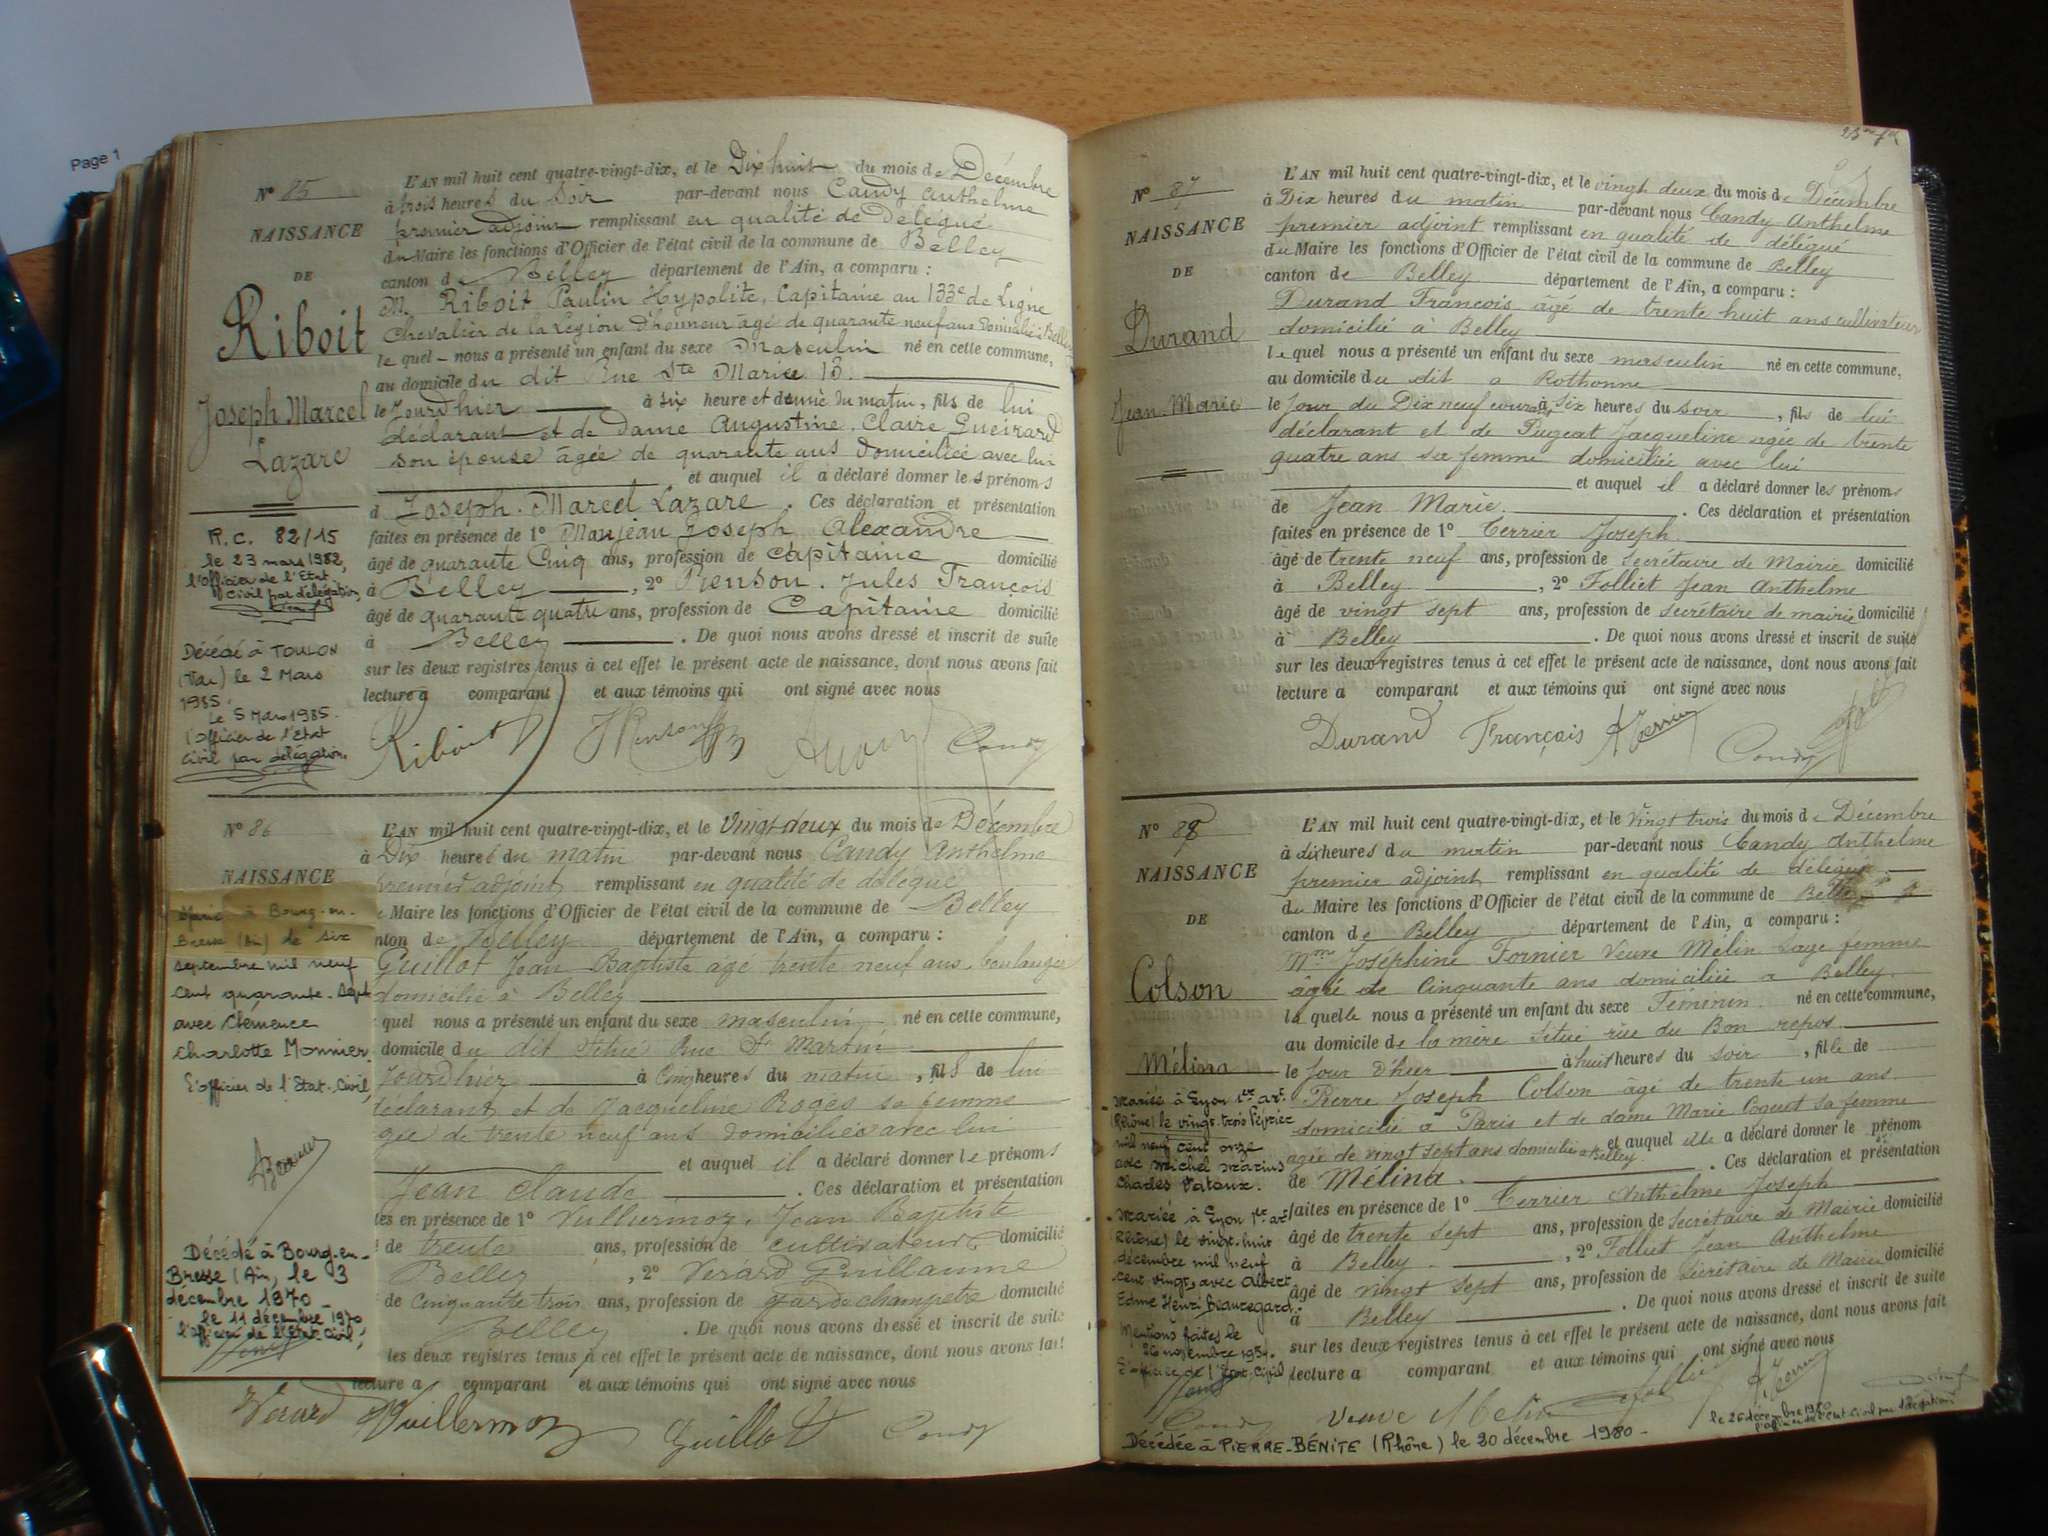 Page 1
N° 85
NAISSANCE
DE
Riboit
Joseph Marcel
Lazare
R.C. 82/15
le 23 mars 1982,
l'Officier de l'Etat
Civil par délégation,
Décédé à TOULON
(Var) le 2 Mars
1985.
Le 5 Mars 1985.
l'Officier de l'Etat
Civil par délégation,
L'AN mil huit cent quatre-vingt-dix, et le Dix huit du mois de Décembre
à trois heures du Soir par-devant nous Candy Anthelme
premier adjoint remplissant en qualité de Délégué
du Maire les fonctions d'Officier de l'état civil de la commune de Belley
canton de Belley département de l'Ain, a comparu :
M. Riboit Paulin Hypolite, Capitaine au 133e de Ligne
Chevalier de la Légion d'honneur âgé de quarante neuf ans Domicilié à Belley
le quel nous a présenté un enfant du sexe Masculin né en cette commune,
au domicile du dit Rue Ste Marie 10.
le Jour d'hier à six heure et demie du matin, fils de lui
déclarant et de Dame Augustine, Claire Gueirard
son épouse âgée de quarante ans Domiciliée avec lui
et auquel il a déclaré donner les prénoms
d Joseph. Marcel Lazare. Ces déclaration et présentation
faites en présence de 1° Manjean Joseph Alexandre
âgé de quarante Cinq ans, profession de Capitaine domicilié
à Belley, 2° Renson. Jules François
âgé de quarante quatre ans, profession de Capitaine domicilié
à Belley. De quoi nous avons dressé et inscrit de suite
sur les deux registres tenus à cet effet le présent acte de naissance, dont nous avons fait
lecture a comparant et aux témoins qui ont signé avec nous
Riboit Candy
N° 86
NAISSANCE
Marié à Bourg-en-
Bresse (Ain) le six
septembre mil neuf
cent quarante-sept
avec Clémence
Charlotte Monnier.
L'officier de l'Etat-Civil,
Décédé à Bourg-en-
Bresse (Ain) le 3
décembre 1970
le 11 décembre 1970
l'officier de l'Etat-Civil,
L'AN mil huit cent quatre-vingt-dix, et le Vingt deux du mois de Décembre
à Dix heures du matin par-devant nous Candy Anthelme
premier adjoint remplissant en qualité de délégué
Maire les fonctions d'Officier de l'état civil de la commune de Belley
nton de Belley département de l'Ain, a comparu :
Guillot Jean Baptiste agé trente neuf ans, boulanger
domicilié à Belley
quel nous a présenté un enfant du sexe masculin né en cette commune,
domicile du dit situé Rue St Martin
Jour d'hier à Cinq heures du matin, fils de lui
déclarant et de Jacqueline Roges sa femme
gée de trente neuf ans domiciliée avec lui
et auquel il a déclaré donner le prénoms
Jean Claude. Ces déclaration et présentation
tes en présence de 1° Vulliermoz, Jean Baptiste
de trente ans, profession de cultivateur domicilié
Belley, 2° Verard Guillaume
de Cinquante trois ans, profession de garde champetre domicilié
Belley. De quoi nous avons dressé et inscrit de suite
les deux registres tenus à cet effet le présent acte de naissance, dont nous avons fait
lecture a comparant et aux témoins qui ont signé avec nous
Verard Vuillermoz Guillot Candy
N° 87
NAISSANCE
DE
Durand
Jean Marie
L'AN mil huit cent quatre-vingt-dix, et le vingt deux du mois de Décembre
à Dix heures du matin par-devant nous Candy Anthelme
premier adjoint remplissant en qualité de délégué
du Maire les fonctions d'Officier de l'état civil de la commune de Belley
canton de Belley département de l'Ain, a comparu :
Durand François âgé de trente huit ans cultivateur
domicilié à Belley
le quel nous a présenté un enfant du sexe masculin né en cette commune,
au domicile du dit a Rothonne
le Jour du Dix neuf courant à Six heures du soir, fils de lui
déclarant et de Pugeat Jacqueline agée de trente
quatre ans sa femme domiciliée avec lui
et auquel il a déclaré donner les prénoms
de Jean Marie. Ces déclaration et présentation
faites en présence de 1° Terrier Joseph
âgé de trente neuf ans, profession de Secrétaire de Mairie domicilié
à Belley, 2° Folliet Jean Anthelme
âgé de vingt sept ans, profession de secrétaire de mairie domicilié
à Belley. De quoi nous avons dressé et inscrit de suite
sur les deux registres tenus à cet effet le présent acte de naissance, dont nous avons fait
lecture a comparant et aux témoins qui ont signé avec nous
Durand François Candy
N° 88
NAISSANCE
DE
Colson
Mélina
Mariée à Lyon 1er arr.
(Rhône) le vingt-trois Février
mil neuf cent onze
avec Michel Marius
Charles Vataux.
Mariée à Lyon 1er arr.
(Rhône) le vingt-huit
décembre mil neuf
cent vingt, avec Albert
Edme Henri Beauregard.
Mentions faites le
26 novembre 1954.
L'officier de l'Etat-Civil
L'AN mil huit cent quatre-vingt-dix, et le Vingt trois du mois de Décembre
à dix heures du matin par-devant nous Candy Anthelme
premier adjoint remplissant en qualité de délégué
du Maire les fonctions d'Officier de l'état civil de la commune de Belley
canton de Belley département de l'Ain, a comparu :
Mme Joséphine Fornier Veuve Mélin Sage femme
âgée de Cinquante ans domiciliée a Belley.
la quelle nous a présenté un enfant du sexe Féminin né en cette commune,
au domicile de la mère situé rue du Bon repos
le Jour d'hier à huit heures du soir, fille de
Pierre Joseph Colson âgé de trente un ans
domicilié a Paris et de dame Marie Coquet sa femme
agée de vingt sept ans domiciliée a Belley. et auquel elle a déclaré donner le prénom
de Mélina. Ces déclaration et présentation
faites en présence de 1° Terrier Anthelme Joseph
âgé de trente sept ans, profession de Secrétaire de Mairie domicilié
à Belley, 2° Folliet Jean Anthelme
âgé de vingt sept ans, profession de Secrétaire de Mairie domicilié
à Belley. De quoi nous avons dressé et inscrit de suite
sur les deux registres tenus à cet effet le présent acte de naissance, dont nous avons fait
lecture a comparant et aux témoins qui ont signé avec nous
Candy Veuve Melin
le 26 décembre 1980
l'officier de l'Etat Civil par délégation
Décédée à PIERRE-BÉNITE (Rhône) le 20 décembre 1980 -